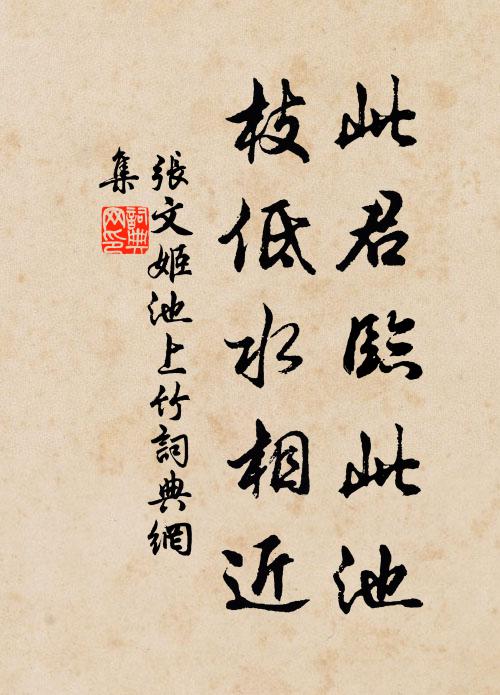 此君臨此池
枝低水相近
張文姬池上竹詞典網
集
詞典網印